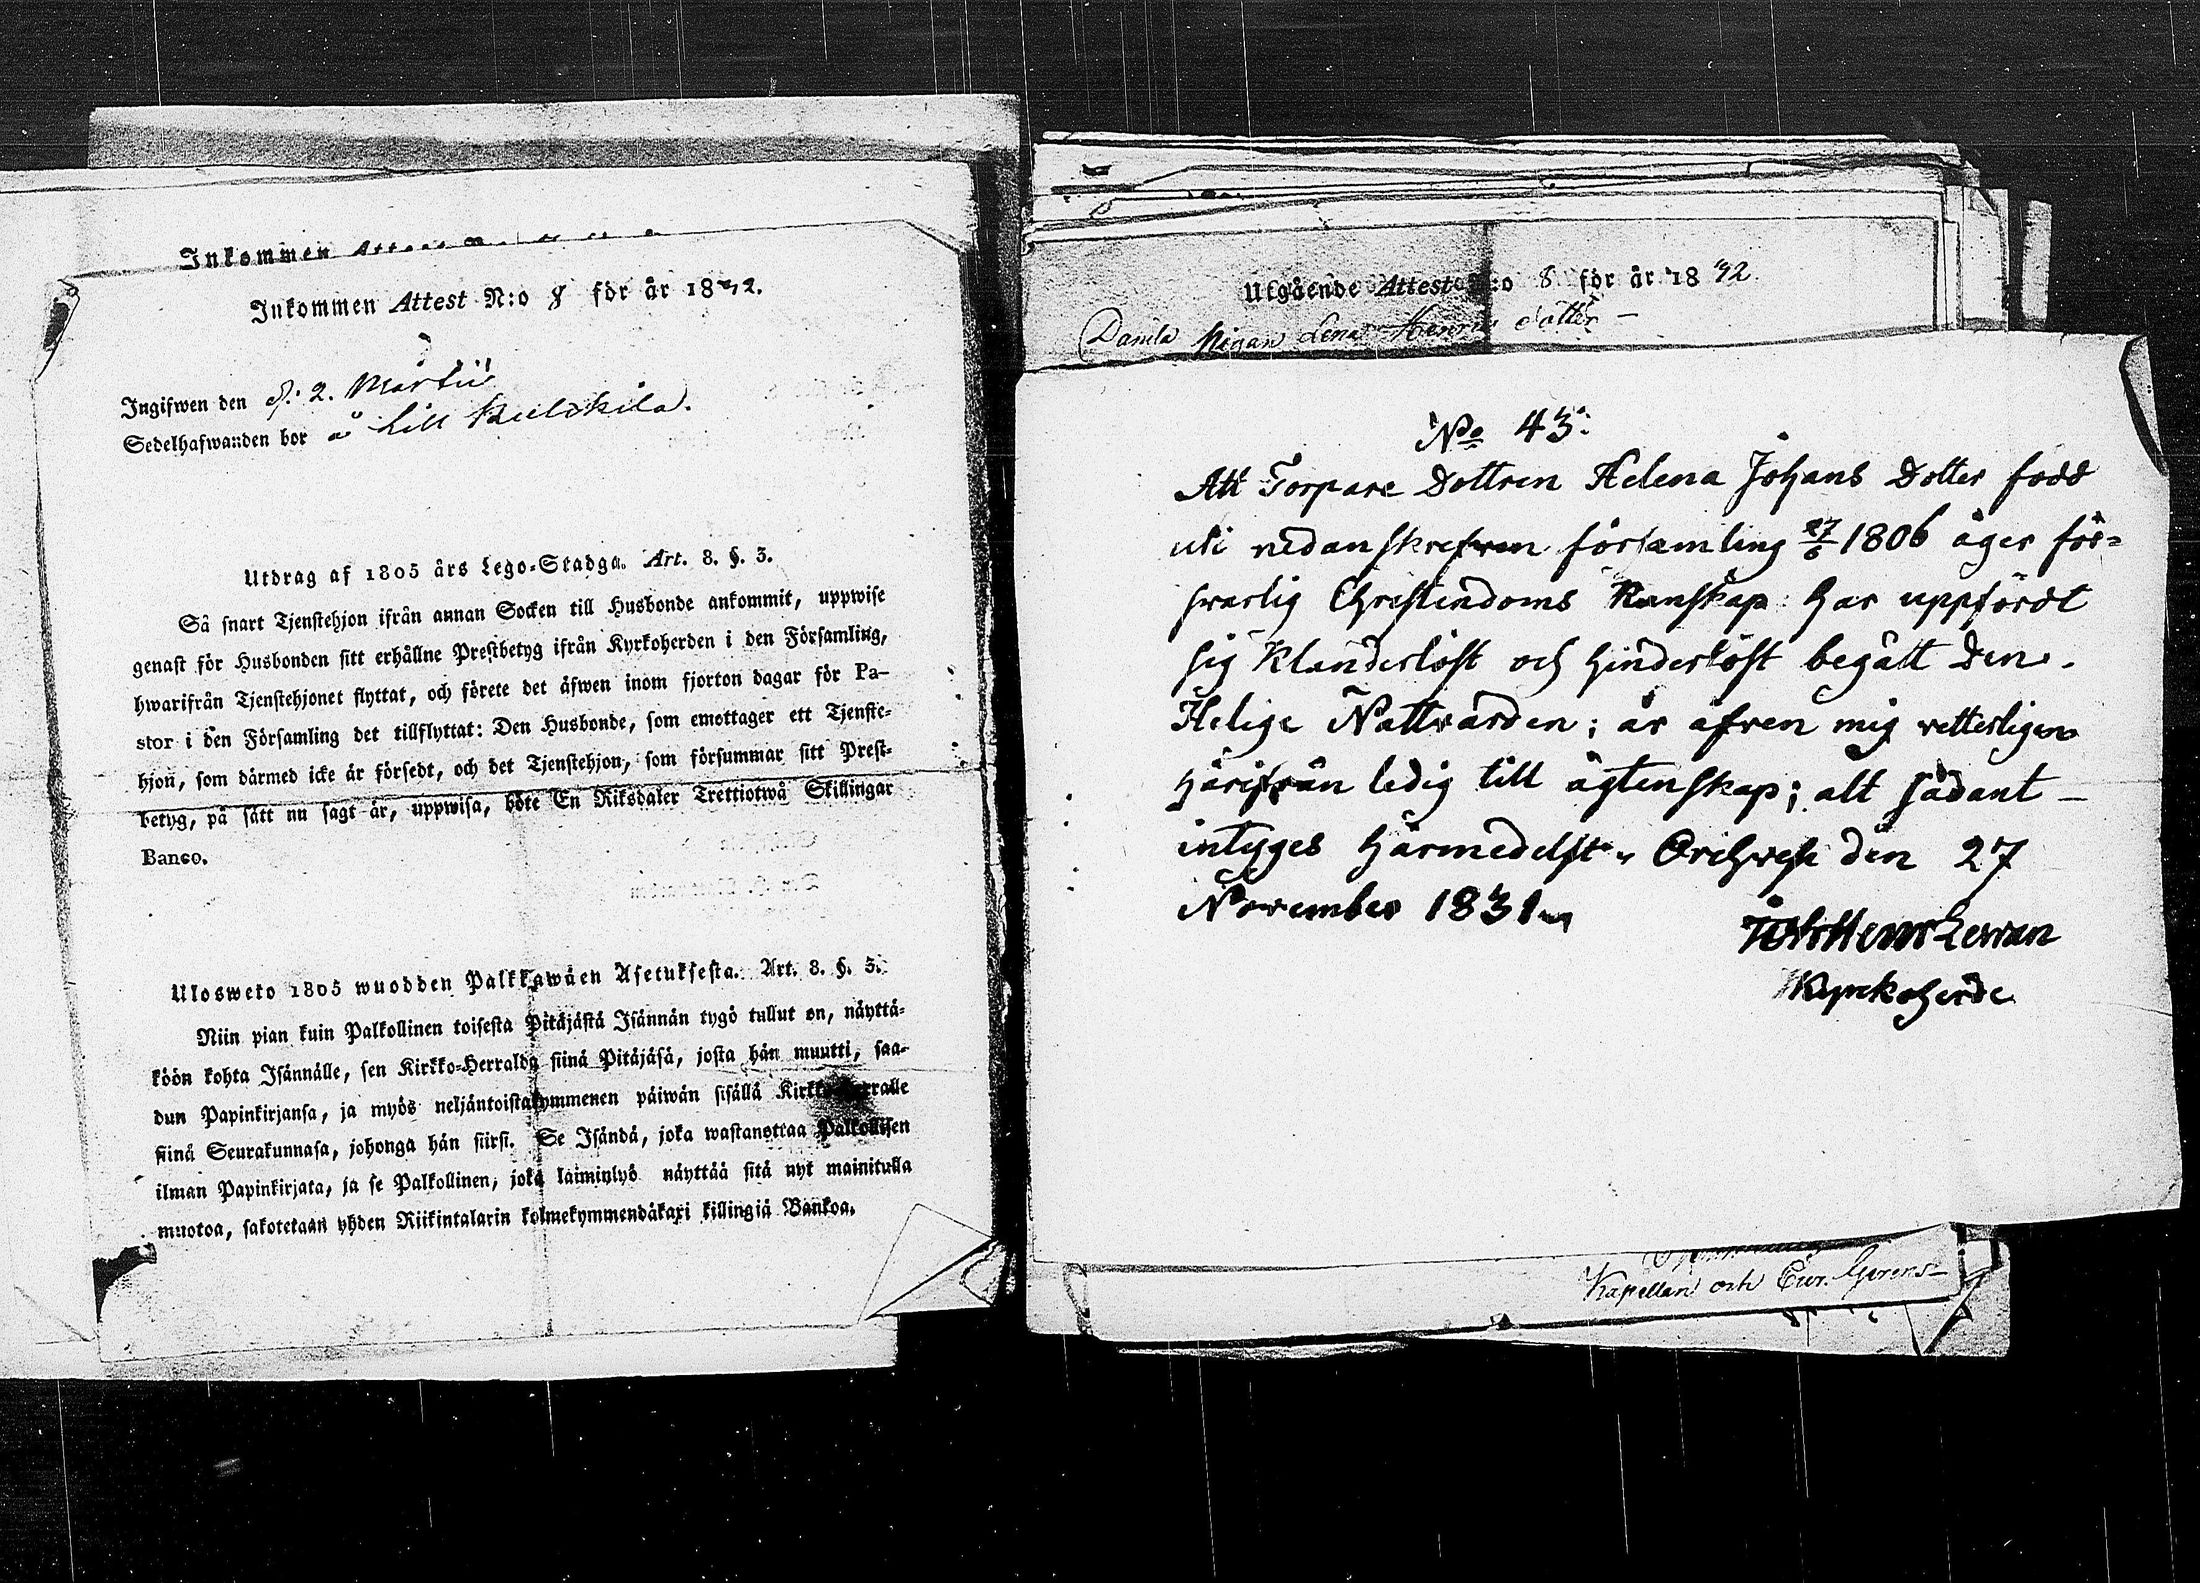 Inkommen Attest
Inkommen Attest N:o 8 för år 1832.
Ingifwen den d. 2. Martii
Sedelhafwanden bor å Lill
Utdrag af 1805 års Lego-Stadga. Art. 8. §. 3.
Så snart Tjenstehjon ifrån annan Socken till Husbonde ankommit, uppwise
genast för Husbonden sitt erhållne Prestbetyg ifrån Kyrkoherden i den Församling,
hwarifrån Tjenstehjonet flyttat, och förete det äfwen inom fjorton dagar för Pa-
stor i den Församling det tillflyttat: Den Husbonde, som emottager ett Tjenste-
hjon, som därmed icke är försedt, och det Tjenstehjon, som försummar sitt Prest-
betyg, på sätt nu sagt är, uppwisa, böte En Riksdaler Trettiotwå Skillingar
Banco.
Ulosweto 1805 wuodden Palkkawäen Asetuksesta. Art. 8. §. 3.
Niin pian kuin Palkollinen toisesta Pitäjästä Isännän tygö tullut on, näyttä-
köön kohta Isännälle, sen Kirkko-Herralda siinä Pitäjäsä, josta hän muutti, saa-
dun Papinkirjansa, ja myös neljäntoistakymmenen päiwän sisällä Kirkko-Herralle
siinä Seurakunnasa, johonga hän siirsi. Se Isändä, joka wastanottaa Palkollisen
ilman Papinkirjata, ja se Palkollinen, joka laiminlyö näyttää sitä nyt mainitulla
muotoa, sakotetaan yhden Riikintalarin kolmekymmendäkaxi killingiä Bankoa.
Utgående Attest N:o 8 för år 1832
Pigan Lena Henrics dotter –
No 43:
Att Torpare Dottren Helena Johans Dotter född
uti nedanskrefwen församling 27/6 1806 äger för=
svarlig Christendoms Kunskap: har uppfördt
sig Klanderlöst och hinderlöst begått Den
Helige Nattvarden; är äfven mig vetterligen
härifrån ledig till ägtenskap; alt sådant –
intyges härmedelst. den 27
November 1831
Joh: Henr Levan
Kyrkoherde
Kapellan och